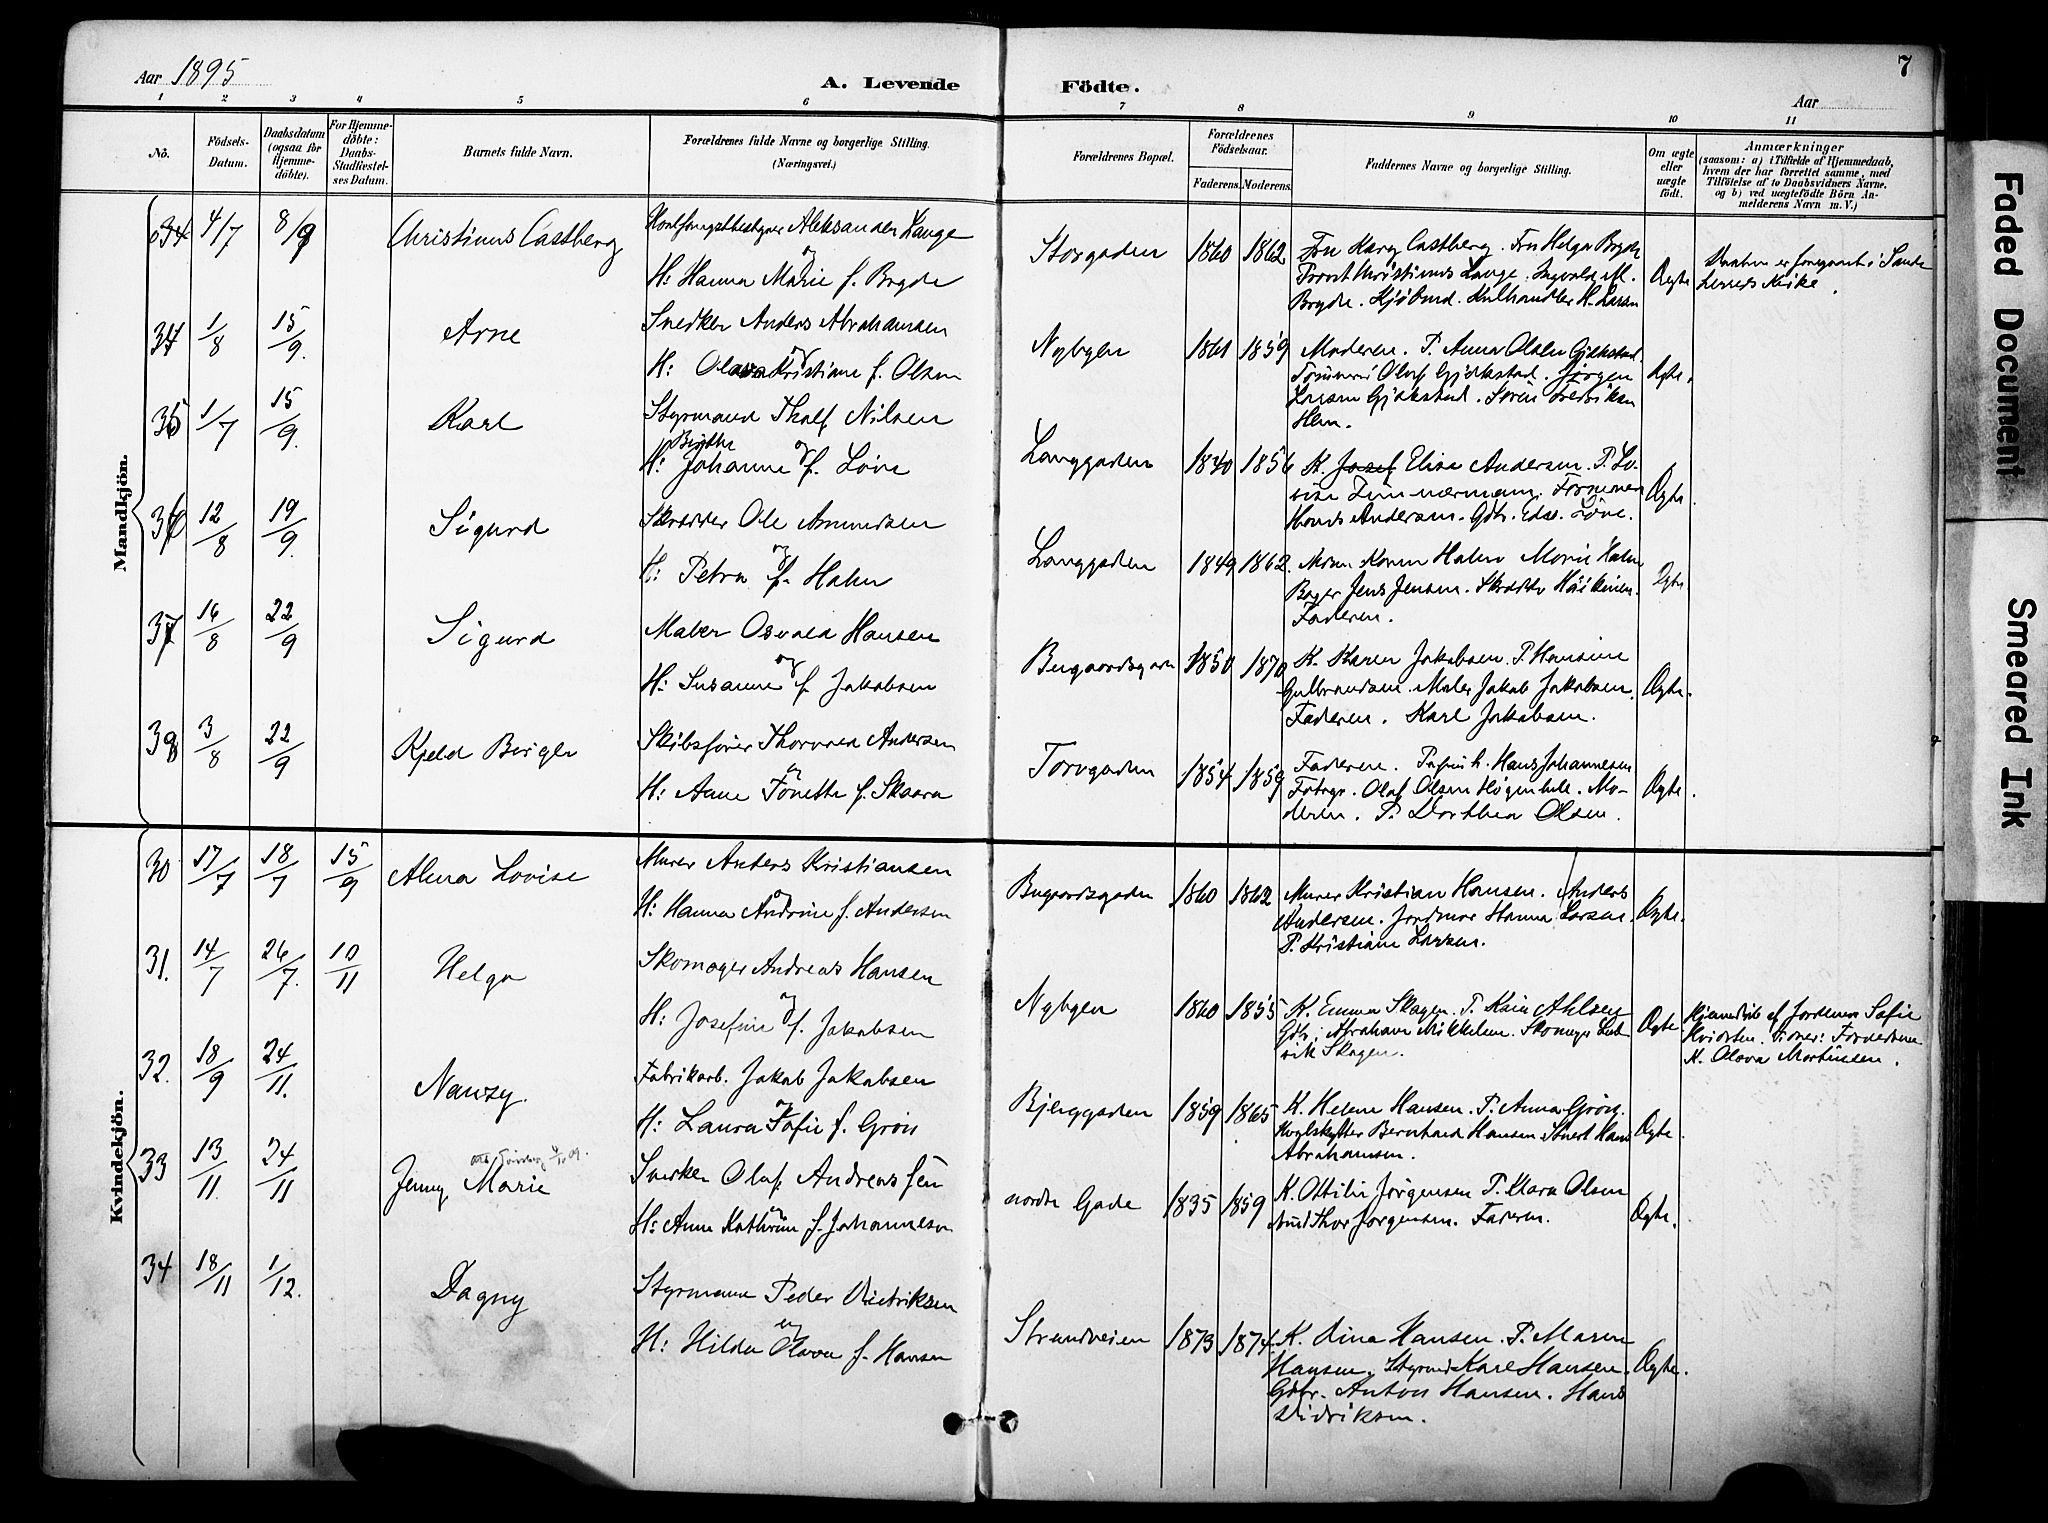 Aar 1895
A. Levende Födte.
7
Aar
1 2 3 4 5 6 7 8 9 10 11
Nò.
Födsels-Datum.
Daabsdatum (ogsaa for Hjemme-döbte).
For Hjemme-döbte: Daabs-Stadfæstel-ses Datum.
Barnets fulde Navn.
Forældrenes fulde Navne og borgerlige Stilling.
(Næringsvei.)
Forældrenes Bopæl.
Forældrenes Födselsaar.
Faderens. Moderens.
Faddernes Navne og borgerlige Stilling.
Om ægte eller uægte födt.
Anmærkninger
(saasom: a) i Tilfælde af Hjemmedaab,
hvem der har forrettet samme, med
Tilföielse af to Daabsvidners Navne,
og b) ved uægtefödte Börn An-
melderens Navn m. V.)
Mandkjön.
34 4/7 8/9 Christinus Castberg Aleksander Lange
og
H: Hanna Marie f. Bryde
Storgaden 1860 1862 Fru Kary Castberg. Fru Helga Bryde
Christinus Lange. Ingvald M.
Bryde. Kulhandler H. Larsen
Ægte
Daaben er foregaaet i Sande
herreds Kirke.
34 1/8 15/9. Arne Snedker Anders Abrahamsen
og
H: Olava Kristiane f. Olsen
Nybyen 1861 1859 Moderen. P. Anna Olsen Gjekstad.
Olaf Gjekstad. Jörgen
Larsen Gjekstad. Sörin Fredriksen
Hem.
Ægte.
35 1/7 15/9. Karl Styrmand Thalf. Nilsen
Birgitte og
H: Johanne f. Löve
Langgaden 1840 1856 K. Josef Elise Andersen. P. Lo-
vise Timmermann. Tömmerm
Hans Andersen. Gdbr. Edv. Löve.
Ægte
36 12/8 19/9. Sigurd Skrædder Ole Amundsen
og
H: Petra f. Hahn
Langgaden 1849 1862. Karen Hahn Marie Hahn
Bager Jens Jensen. Skrædder
Faderen.
Ægte
37 16/8 22/9 Sigurd Maler Osvald Hansen
og
H: Susanne f. Jakobsen
Bugaardsgaden 1850 1870 K. Karen Jakobsen. P. Hansine
Gulbrandsen. Maler Jakob Jakobsen.
Faderen. Karl Jakobsen.
Ægte.
38 3/8 22/9 Kjeld Birger Skibsförer Thorvald Andersen
og
H: Anne Tonette f. Skaara
Torvgaden 1854 1859 Faderen. Hans Johannesen
Fotogr. Olaf Olsen Högenhale. Mo-
deren. P. Dorthea Olsen.
Ægte.
Kvindekjön.
30 17/7 18/7 15/9 Alma Lovise Murer Anders Kristiansen
og
H: Hanna Andrine f. Andersen
Bugaardsgaden 1860 1862 Murer Kristian Hansen. Anders
Andersen. Jordmor Hanna Larsen.
P. Kristiane Larsen.
Ægte.
31. 14/7 26/7. 10/11 Helga Skomager Andreas Hansen
og
H: Josefine f. Jakobsen
Nybyen 1860 1855 K. Emma Skagen. P. Karin Ahlsen
Gdbr. Abraham Mikkelsen. Skomager Lud-
vik Skagen.
Ægte
Hjemmedöbt af Jordemor Sofie
Kvidsten. Vidner: Forældrene
K. Olava Martinsen.
32. 18/9 24/11. Nanzy. Fabrikarb. Jakob Jakobsen
og
H: Laura Sofie f. Grön
Bjerggaden 1859 1865 K. Helene Hansen. P. Anna Grön.
Hvalskytter Bernhard Hansen Stuert Hans
Abrahamsen.
Ægte.
33 13/11. 24/11 Jenny Marie Snedker Olaf Andreassen
og
H: Anne Kathrine f. Johannesen
nordre Gade 1835 1859 K. Ottilie Jörgensen P. Klara Olsen
Thor Jörgensen. Faderen.
Ægte.
34 18/11 1/12. Dagny Styrmand Peder Didriksen
og
H: Hilda Olava f. Hansen
Strandveien 1873 1874. K. Dina Hansen. P. Maren
Hansen. Styrmd Karl Hansen.
Gdbr. Anton Hansen. Hans
Didriksen.
Ægte.
Faded Document
Smeared Ink